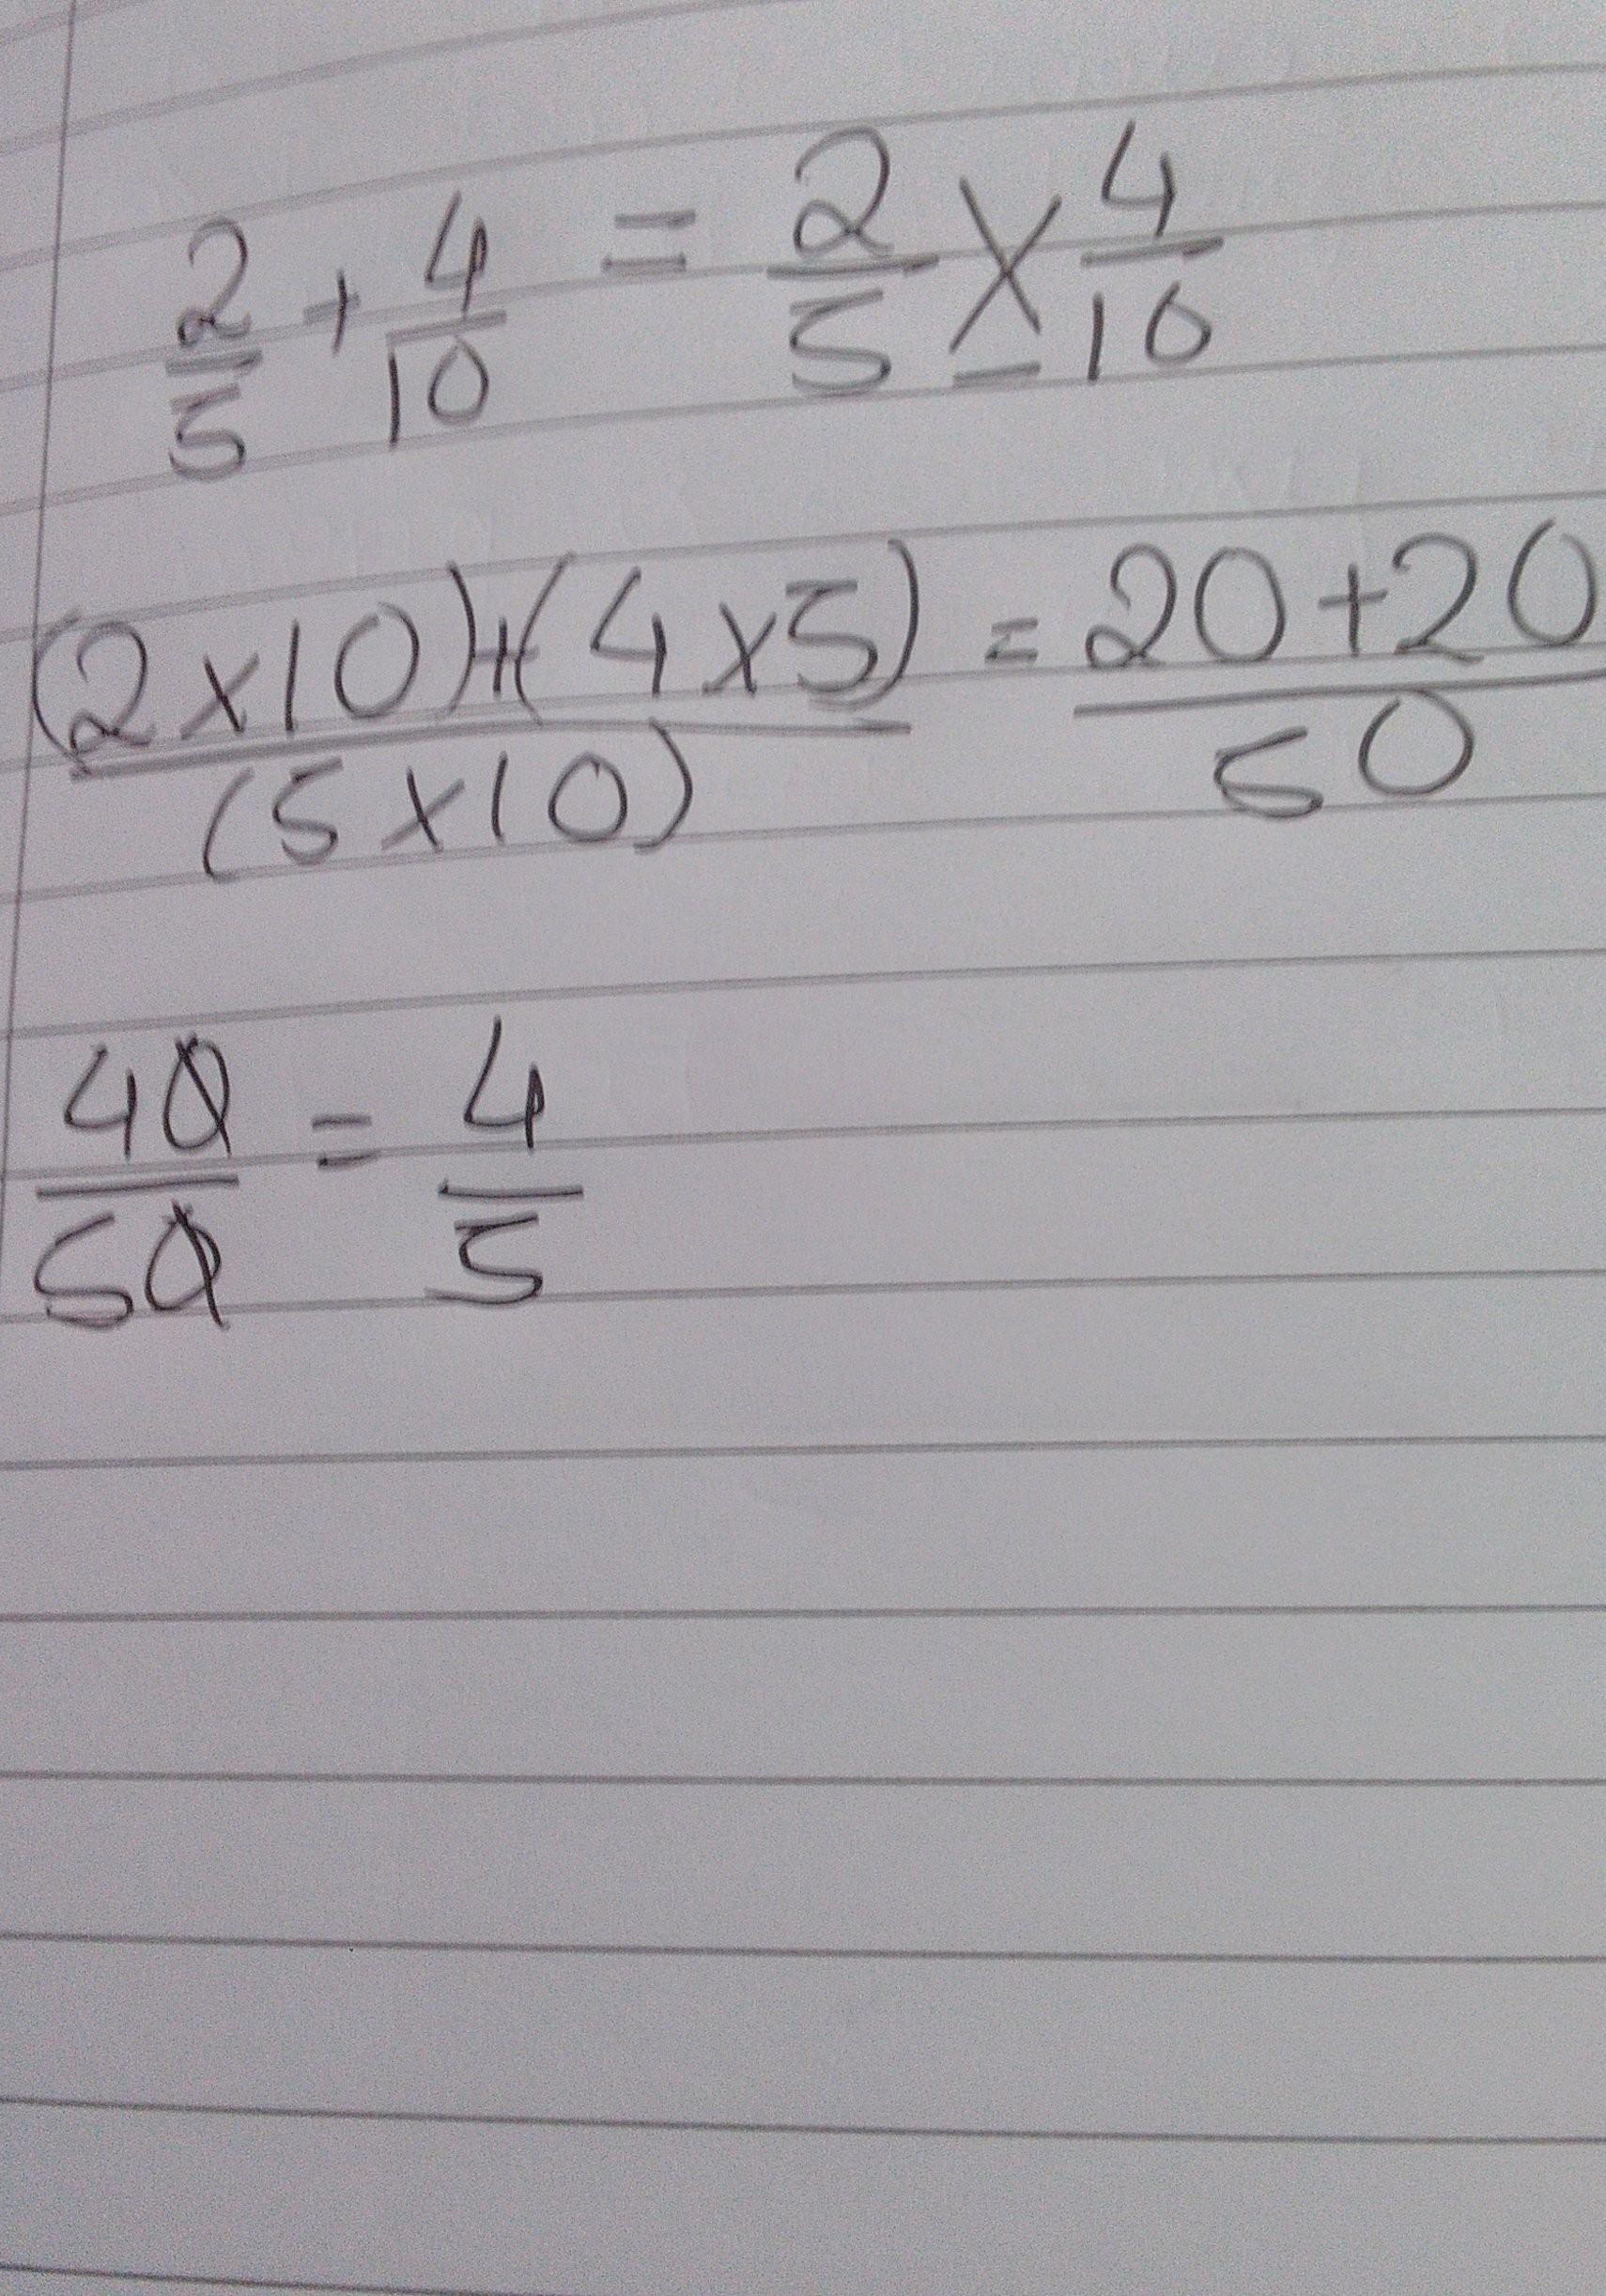 2/5 + 4/10 = 2/5 × 4/10
(2×10)+(4×5)/(5×10) = 20+20/50
40/50 = 4/5